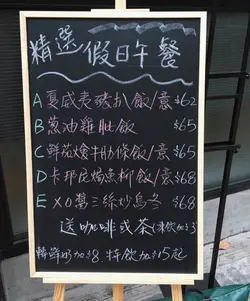 精選假日午餐
A 夏威夷豬扒飯/意 $62
B 蔥油雞肶飯 $65
C 鮮茄燴牛肋條飯/意 $65
D 卡邦尼燴魚柳飯/意 $68
E XO萬三絲炒烏冬 $68
送咖啡或茶(凍飲加$3)
轉鮮奶加$8, 特飲加$15起